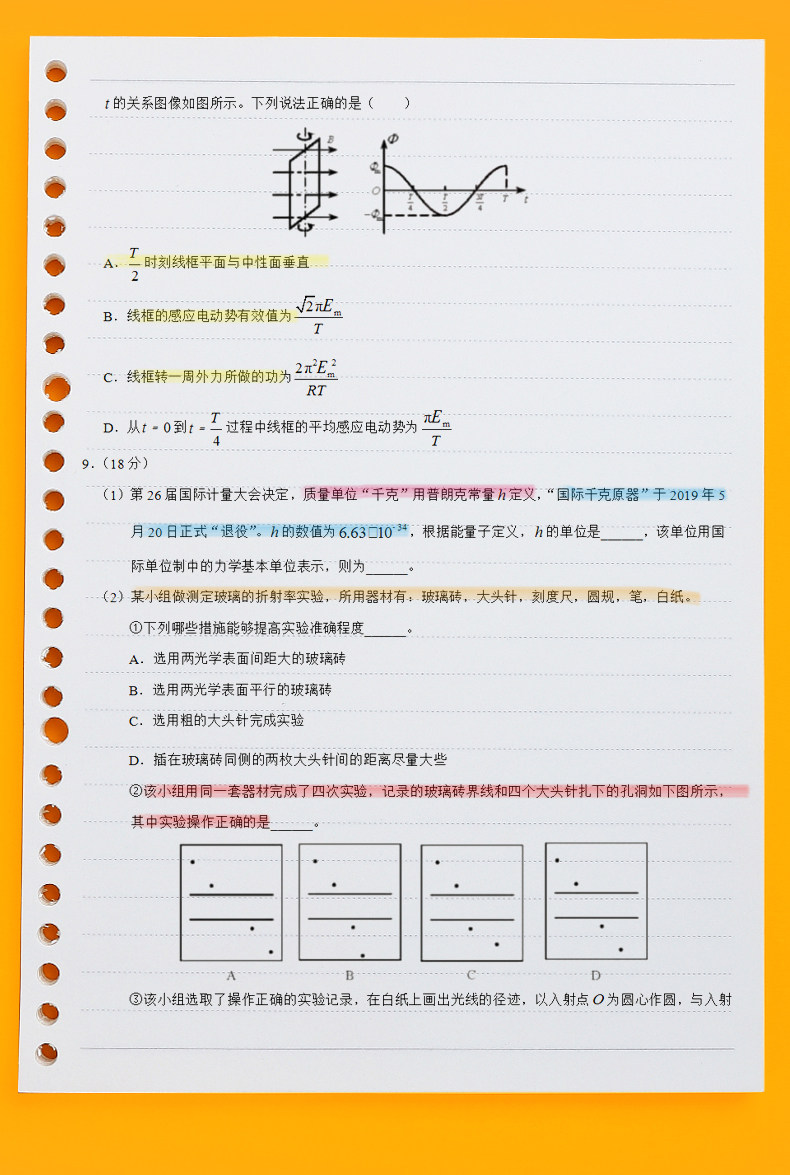 t的关系图像如图所示。下列说法正确的是（　　）
B
Φ
Φm
O
T/4
T/2
3T/4
T
t
−Φm
A．T/2时刻线框平面与中性面垂直
B．线框的感应电动势有效值为√2πEm/T
C．线框转一周外力所做的功为2π²Em²/RT
D．从t = 0到t = T/4过程中线框的平均感应电动势为πEm/T
9.（18分）
（1）第26届国际计量大会决定，质量单位“千克”用普朗克常量h定义，“国际千克原器”于2019年5
月20日正式“退役”。h的数值为6.63□10⁻³⁴，根据能量子定义，h的单位是______，该单位用国
际单位制中的力学基本单位表示，则为______。
（2）某小组做测定玻璃的折射率实验，所用器材有：玻璃砖，大头针，刻度尺，圆规，笔，白纸。
①下列哪些措施能够提高实验准确程度______。
A．选用两光学表面间距大的玻璃砖
B．选用两光学表面平行的玻璃砖
C．选用粗的大头针完成实验
D．插在玻璃砖同侧的两枚大头针间的距离尽量大些
②该小组用同一套器材完成了四次实验，记录的玻璃砖界线和四个大头针扎下的孔洞如下图所示，
其中实验操作正确的是______。
A B C D
③该小组选取了操作正确的实验记录，在白纸上画出光线的径迹，以入射点O为圆心作圆，与入射